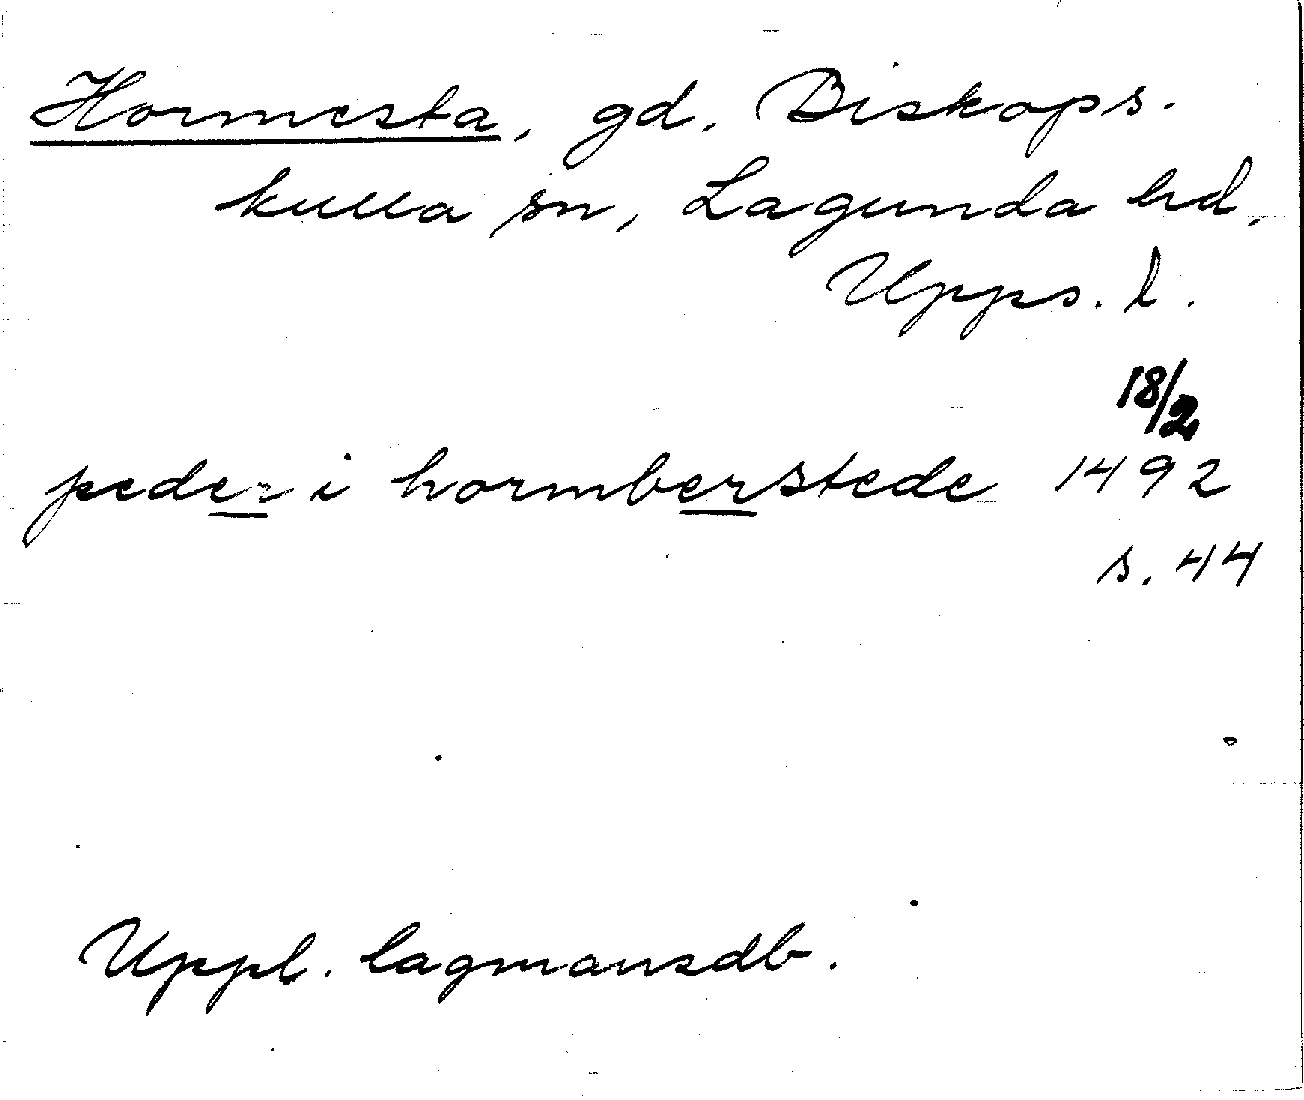 Hormesta, gd. Biskops-
kulla sn, Lagunda hd,
Upps. l.
18/2
peder i hormberstede 1492
s. 44
Uppl. lagmansdb.